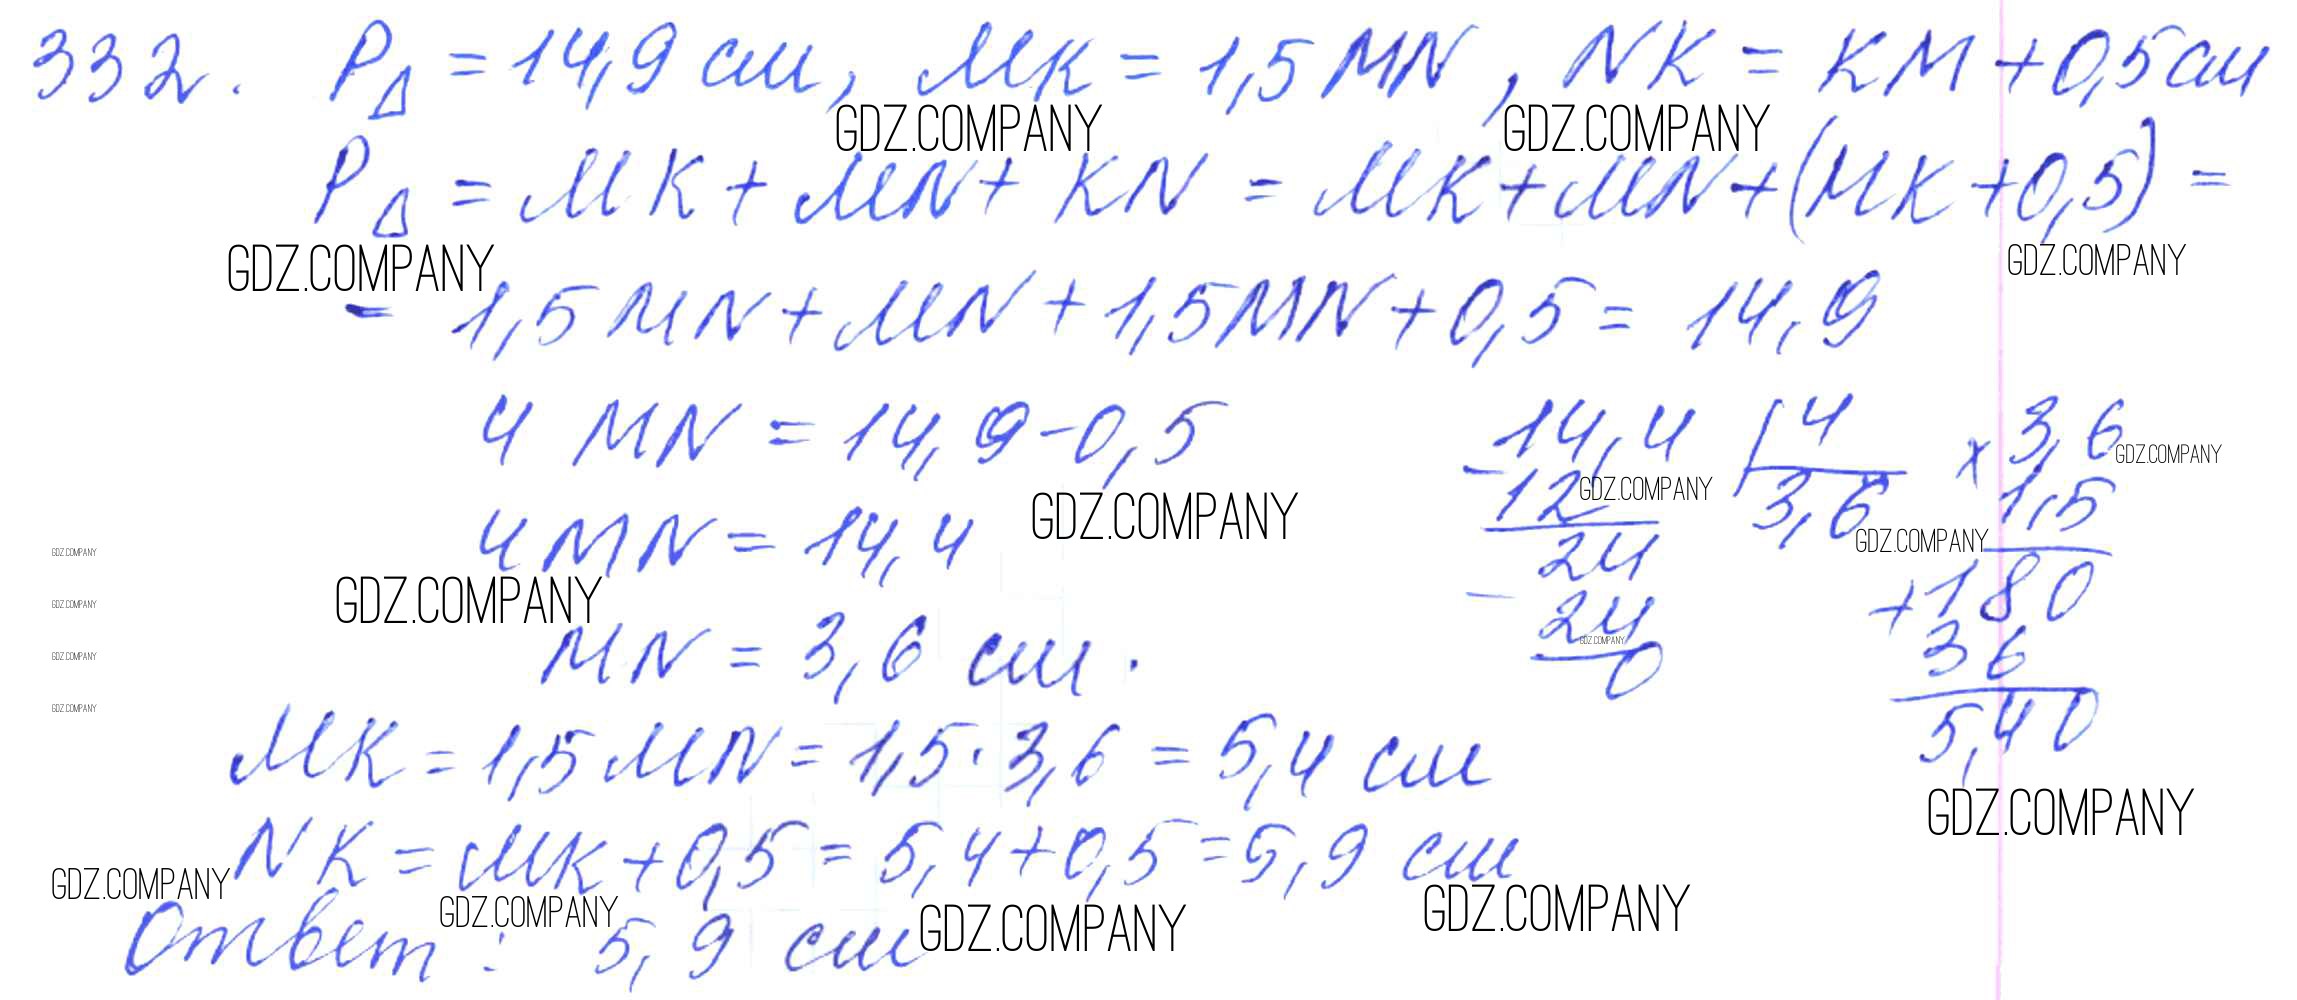 332. P△ = 14,9 см, MK = 1,5 MN, NK = KM + 0,5 см
GDZ.COMPANY GDZ.COMPANY
P△ = MK + MN + KN = MK + MN + (MK + 0,5) =
GDZ.COMPANY GDZ.COMPANY
= 1,5 MN + MN + 1,5 MN + 0,5 = 14,9
4 MN = 14,9 - 0,5 14,4 | 4 × 3,6
GDZ.COMPANY
- 12 3,6 1,5
GDZ.COMPANY GDZ.COMPANY GDZ.COMPANY
4 MN = 14,4 24 + 180
GDZ.COMPANY
GDZ.COMPANY - 24 36
GDZ.COMPANY GDZ.COMPANY
MN = 3,6 см. 0
GDZ.COMPANY
GDZ.COMPANY
MK = 1,5 MN = 1,5 · 3,6 = 5,4 см 5,40
GDZ.COMPANY
NK = MK + 0,5 = 5,4 + 0,5 = 5,9 см
GDZ.COMPANY GDZ.COMPANY GDZ.COMPANY GDZ.COMPANY
Ответ: 5,9 см